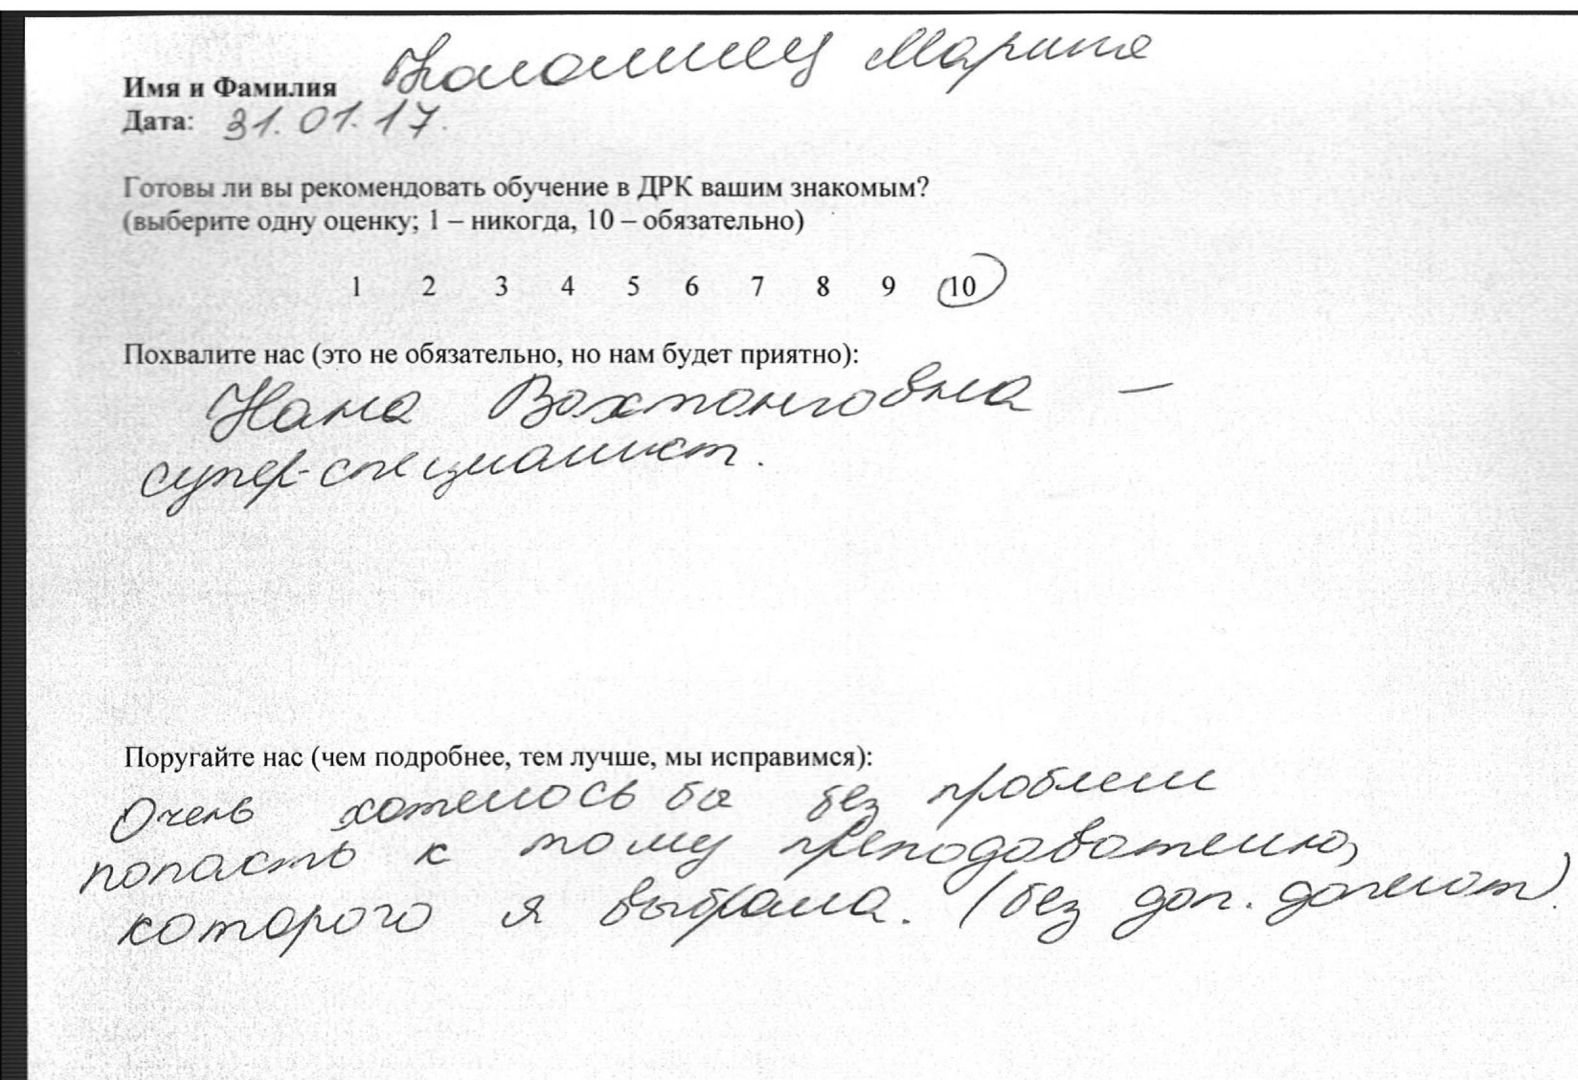 Имя и Фамилия Коломиец Марина
Дата: 31.01.17.
Готовы ли вы рекомендовать обучение в ДРК вашим знакомым?
(выберите одну оценку; 1 – никогда, 10 – обязательно)
1 2 3 4 5 6 7 8 9 10
Похвалите нас (это не обязательно, но нам будет приятно):
Нана Вахтанговна —
супер-специалист.
Поругайте нас (чем подробнее, тем лучше, мы исправимся):
Очень хотелось бы без проблем
попасть к тому преподавателю,
которого я выбрала. (без доп. доплат).